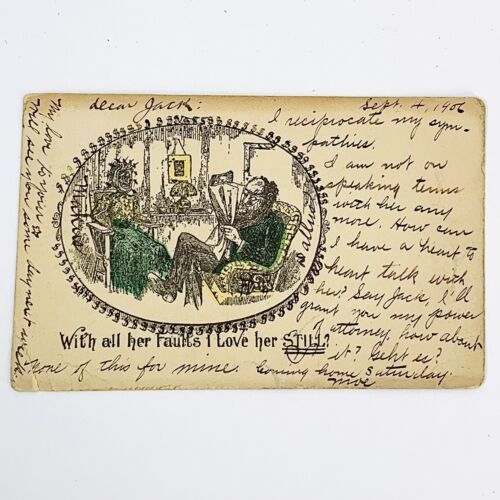 Sept. 4, 1906
Dear Jack:
I reciprocate my sym-
pathies.
I am not on
speaking terms
with her any
more. How can
I have a heart to
heart talk with
her? Say Jack, I'll
grant you my power
of attorney, how about
it? Geht es?
Coming home Saturday.
Moe
With all her Faults I Love her STILL?
None of this for mine.
My love to yours
Will see you some day next week.